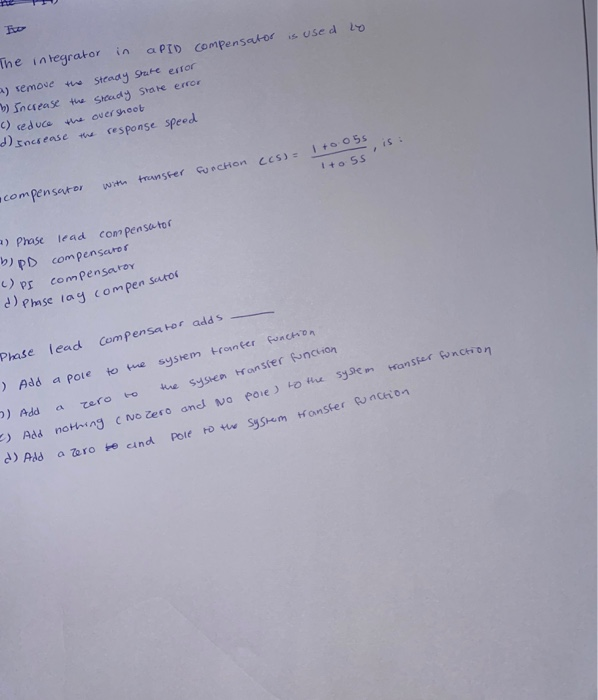 The integrator in a PID compensator is used to
a) remove the steady state error
b) Increase the steady state error
c) reduce the overshoot
d) Increase the response speed
compensator with transfer function C(s) = 1+0.05s / 1+0.5s, is :
a) Phase lead compensator
b) PD compensator
c) PI compensator
d) Phase lag compensator
Phase lead compensator adds ____
) Add a pole to the system tranfer function
b) Add a zero to the system transfer function
c) Add nothing (No zero and No pole) to the system transfer function
d) Add a zero and pole to the system transfer function